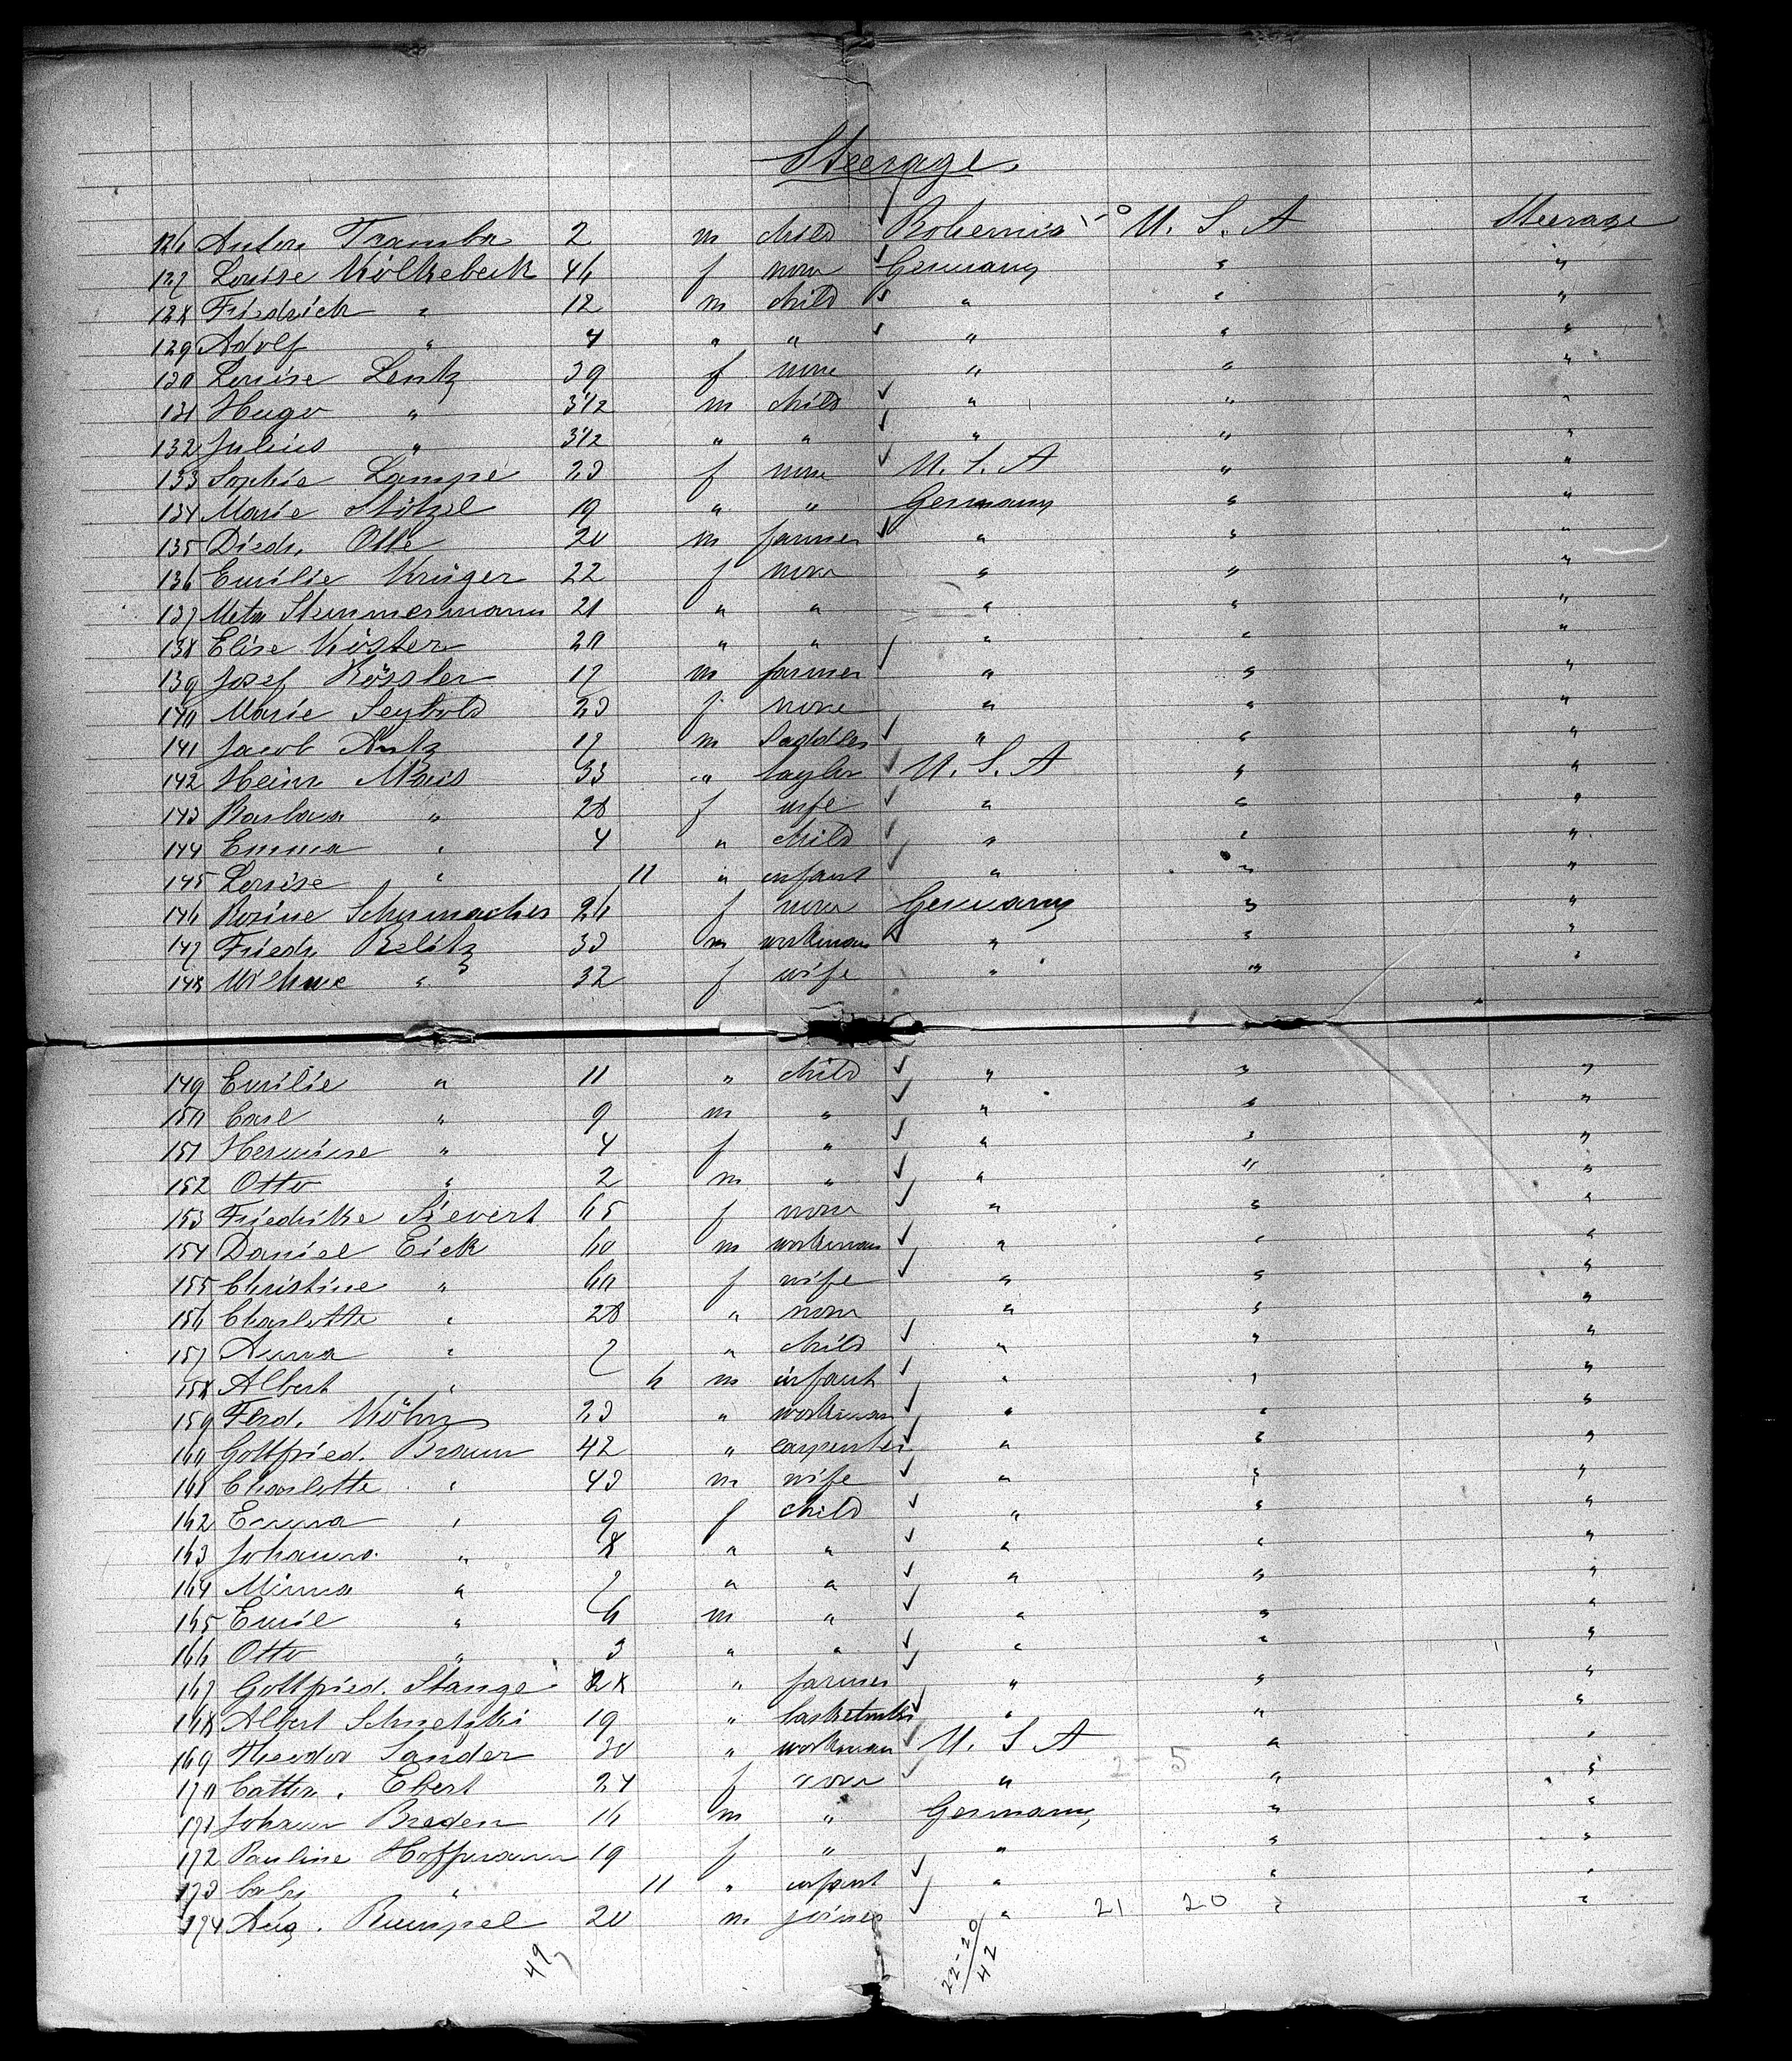 Steerage
126 Anton Tramba 2 m child ✓ Bohemia 1-0 U. S. A Steerage
127 Louise Kölkebeck 46 f none ✓ Germany " "
128 Friedrich " 12 m child ✓ " " "
129 Adolf " 4 " " ✓ " " "
130 Louise Lentz 39 f none " " "
131 Hugo " 3 1/2 m child ✓ " " "
132 Julius " 3 1/2 " " ✓ " " "
133 Sophie Lampe 23 f none ✓ U. S. A " "
134 Marie Stötzel 19 " " Germany " "
135 Diedr. Otte 20 m farmer ✓ " " "
136 Emilie Krüger 22 f none " " "
137 Meta Stemmermann 21 " " " " "
138 Elise Köster 20 " " " " "
139 Josef Rössler 17 m farmer ✓ " " "
140 Marie Seybold 23 f none " " "
141 Jacob Antz 17 m saddler ✓ " " "
142 Heinr Mais 33 " taylor ✓ U. S. A " "
143 Barbara " 28 f wife ✓ " " "
144 Emma " 4 " child ✓ " " "
145 Louise " 11 " infant ✓ " " "
146 Rosine Schumacher 26 f none Germany " "
147 Friedr. Belitz 33 m workman ✓ " " "
148 Wilhme " 32 f wife " " "
149 Emilie " 11 " child ✓ " " "
150 Carl " 9 m " ✓ " " "
151 Hermine " 4 f " ✓ " " "
152 Otto " 2 m " ✓ " " "
153 Friedrike Sievert 65 f none ✓ " " "
154 Daniel Eick 60 m workman ✓ " " "
155 Christine " 60 f wife ✓ " " "
156 Charlotte " 28 " none " " "
157 Anna " 7 " child ✓ " " "
158 Albert " 6 m infant ✓ " " "
159 Ferd. Köhn 23 " workman ✓ " " "
160 Gottfried. Braun 42 " carpenter ✓ " " "
161 Charlotte " 43 m wife ✓ " " "
162 Emma " 9 f child ✓ " " "
163 Johanna " 8 " " ✓ " " "
164 Minna " 7 " " ✓ " " "
165 Emil " 6 m " ✓ " " "
166 Otto " 3 " " ✓ " " "
167 Gottfried. Stange 28 " farmer " " "
168 Albert 19 " ✓ " " "
169 Theodor Sander 30 " workman ✓ U. S. A " "
170 Cathr. Ebert 24 f none ✓ " 2-5 " "
171 Johann Breden 16 m " Germany " "
172 Pauline Hoffmann 19 f " " " "
173 baby " 11 " infant ✓ " " "
174 Aug. Rumpel 20 m joiner ✓ " 21 20 " "
49
22-20/42